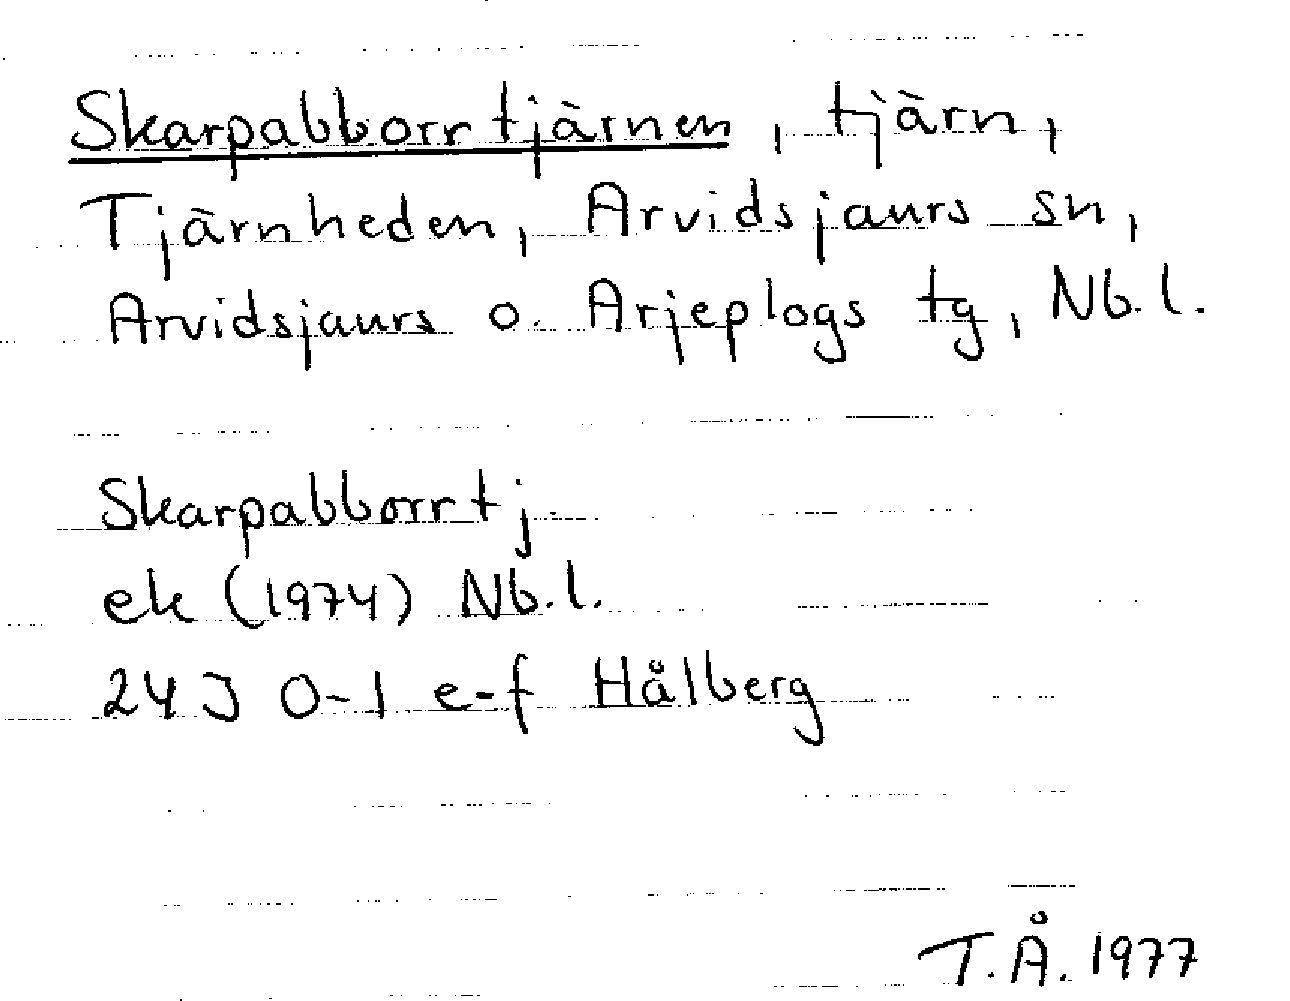 Skarpabborrtjärnen, tjärn,
Tjärnheden, Arvidsjaurs sn,
Arvidsjaurs o. Arjeplogs tg, Nb.l.
Skarpabborrtj
ek (1974) Nb.l.
24J 0-1 e-f Hålberg
T.Å. 1977